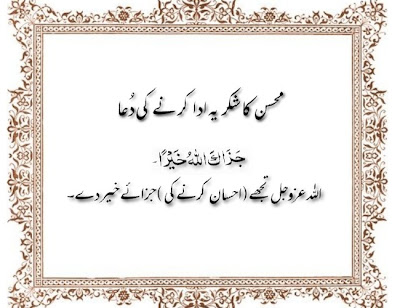 محسن کا شکریہ ادا کرنے کی دُعا
جَزَاكَ اللّٰهُ خَيْرًا۔
اللہ عزوجل تجھے (احسان کرنے کی) جزائے خیر دے۔